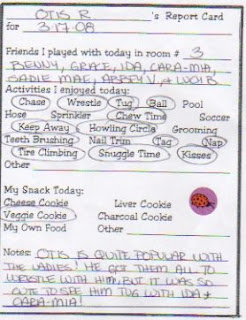 OTIS R 's Report Card
for 3-17-08
Friends I played with today in room # 3
BENNY, GRACE, IDA, CARA-MIA,
SADIE MAE, ABBEY V, &
Activities I enjoyed today:
Chase Wrestle Tug Ball Pool
Hose Sprinkler Chew Time Soccer
Keep Away Howling Circle Grooming
Teeth Brushing Nail Trim Tag Nap
Tire Climbing Snuggle Time Kisses
Other
My Snack Today:
Cheese Cookie Liver Cookie
Veggie Cookie Charcoal Cookie
My Own Food Other
Notes: OTIS IS QUITE POPULAR WITH
THE LADIES! HE GOT THEM ALL TO
WRESTLE WITH HIM, BUT IT WAS SO
CUTE TO SEE HIM TUG WITH IDA &
CARA-MIA!